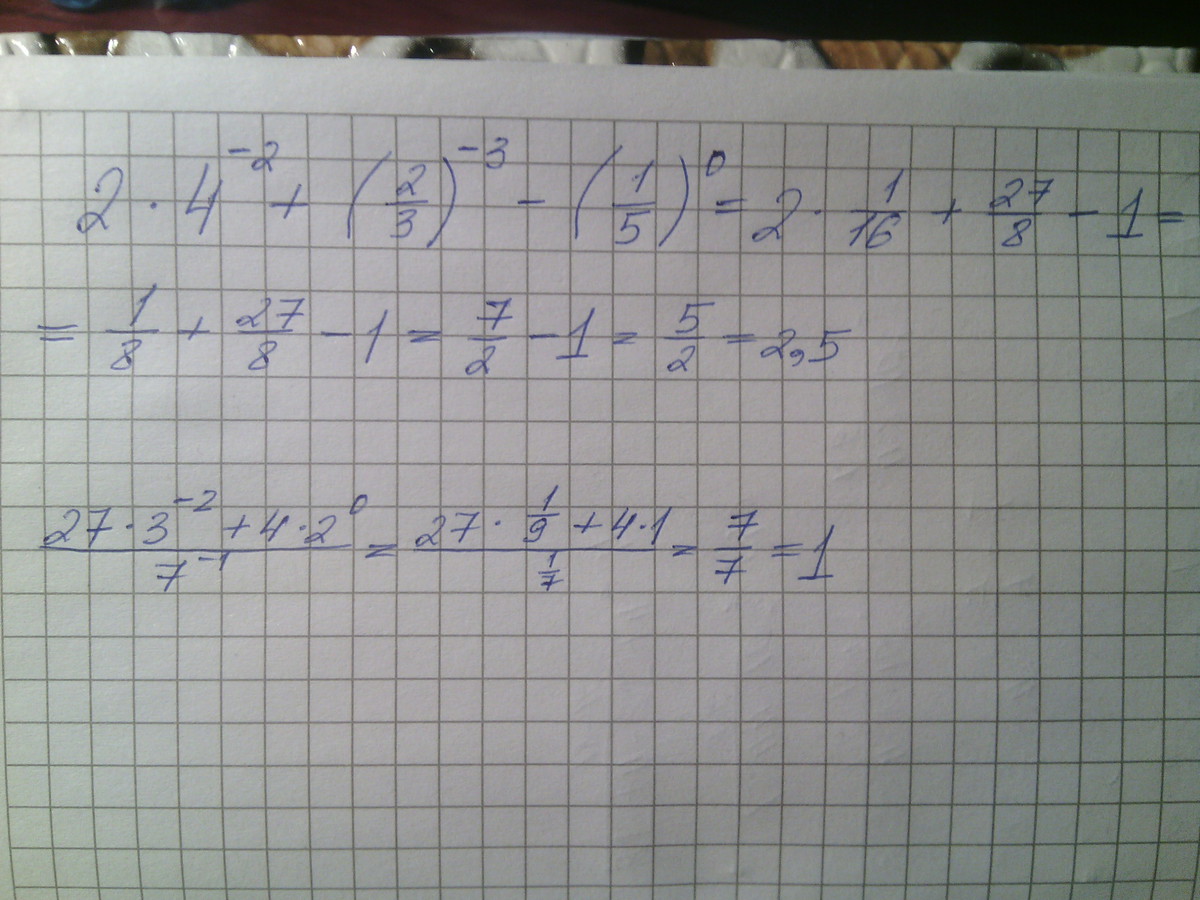 2 · 4^{-2} + (2/3)^{-3} - (1/5)^0 = 2 · 1/16 + 27/8 - 1 =
= 1/8 + 27/8 - 1 = 7/2 - 1 = 5/2 = 2,5
(27 · 3^{-2} + 4 · 2^0)/(7^{-1}) = (27 · 1/9 + 4 · 1)/(1/7) = 7/7 = 1